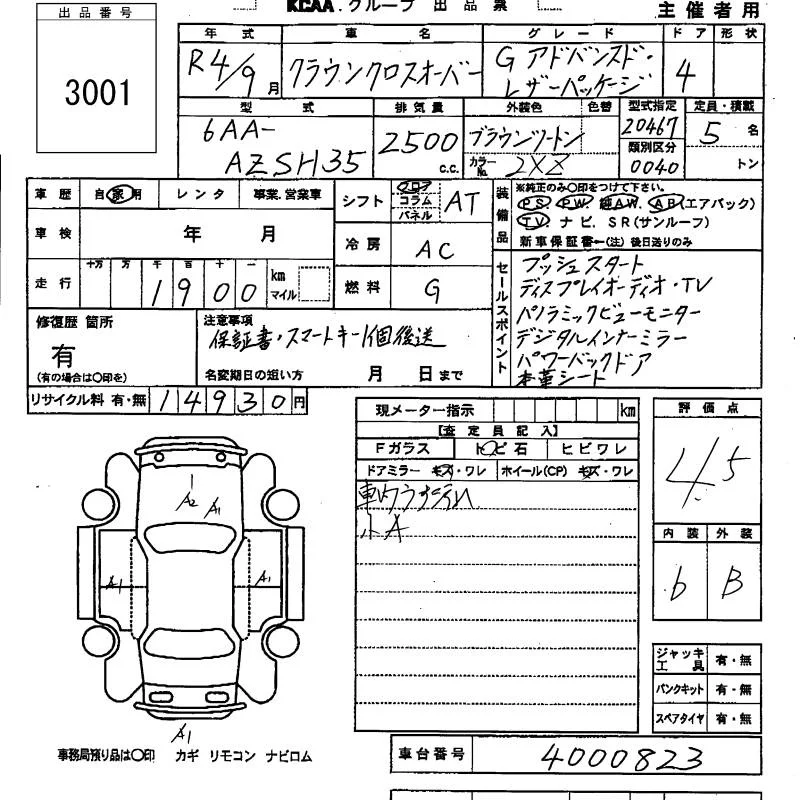 KCAA.グループ 出品票
主催者用
出品番号
3001
年式 車名 グレード ドア 形状
R4/9月 クラウンクロスオーバー G アドバンスド・レザーパッケージ 4
型式 排気量 外装色 色替 型式指定 定員・積載
6AA-AZSH35 2500 c.c. ブラウンツートン カラーNo. 2XZ 20467 類別区分 0040 5名 トン
車歴 自家用 レンタ 事業.営業車
車検 年 月
走行 十万 万 千 百 十 一 km マイル
1900
シフト フロア コラム パネル AT
冷房 AC
燃料 G
装備品
※純正のみ〇印をつけて下さい。
PS PW 純AW. AB(エアバック)
TV ナビ. SR(サンルーフ)
新車保証書←(注)後日送りのみ
セールスポイント
プッシュスタート
ディスプレイオーディオ・TV
パノラミックビューモニター
デジタルインナーミラー
パワーバックドア
本革シート
修復歴 箇所
有
(有の場合は〇印を)
注意事項
保証書・スマートキー1個後送
名変期日の短い方 月 日まで
リサイクル料 有・無 14930円
現メーター指示 km
【査定員記入】
Fガラス トビ石 ヒビワレ
ドアミラー キズ・ワレ ホイール(CP) キズ・ワレ
小A
評価点
4.5
内装 外装
b B
ジャッキ工具 有・無
パンクキット 有・無
スペアタイヤ 有・無
A2 A1
A1 A1
A1
事務局預り品は〇印 カギ リモコン ナビロム
車台番号 4000823